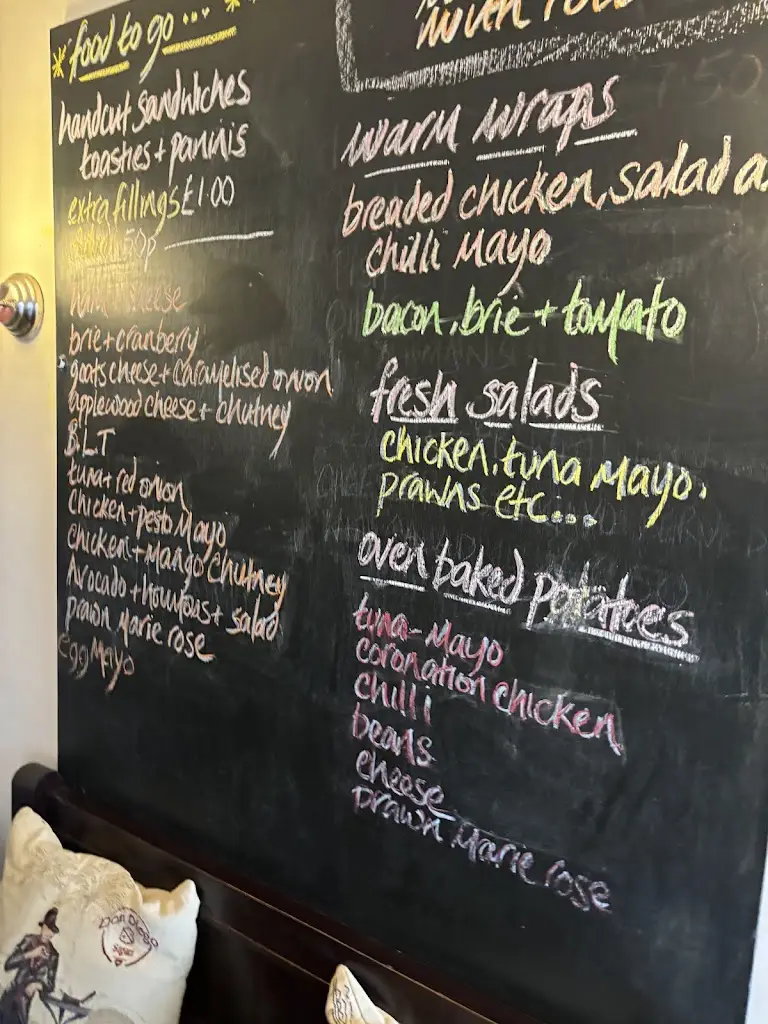 food to go...
handcut sandwiches
toasties + paninis
extra fillings £1.00
50p
ham + cheese
brie + cranberry
goats cheese + caramelised onion
applewood cheese + chutney
B.L.T
tuna + red onion
chicken + pesto Mayo
chicken + Mango chutney
Avocado + houmous + salad
prawn Marie rose
egg Mayo
with
7.50
warm wraps
breaded chicken, salad a
chilli Mayo
bacon, brie + tomato
fresh salads
chicken, tuna Mayo,
prawns etc...
oven baked potatoes
tuna-Mayo
coronation chicken
chilli
beans
cheese
prawn Marie rose
Don Diego